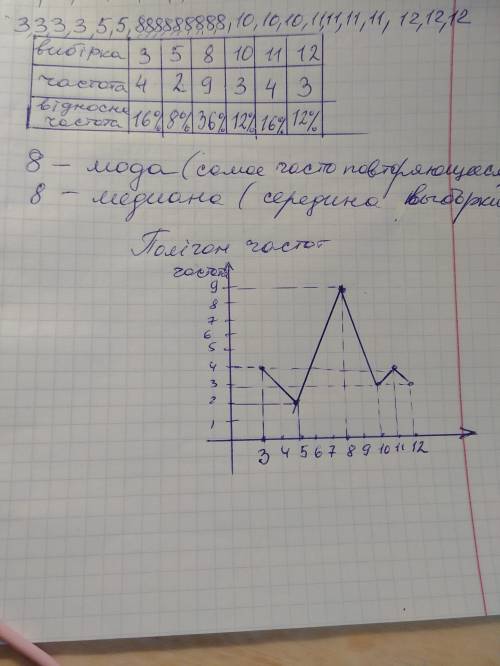 3,3,3,3,5,5,8,8,8,8,8,8,8,8,8,10,10,10,11,11,11,11,12,12,12
вибірка 3 5 8 10 11 12
частота 4 2 9 3 4 3
відносна частота 16% 8% 36% 12% 16% 12%
8 – мода (самое часто повторяющееся
8 – медиана ( середина выборки
Полігон частот
частота
9
8
7
6
5
4
3
2
1
3 4 5 6 7 8 9 10 11 12